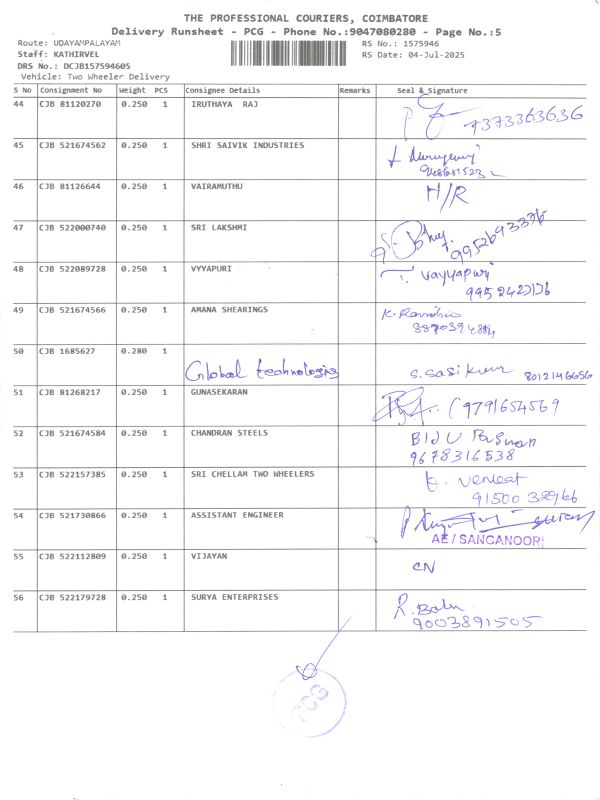 THE PROFESSIONAL COURIERS, COIMBATORE
Delivery Runsheet - PCG - Phone No.:9047080280 - Page No.:5
Route: UDAYAMPALAYAM RS No.: 1575946
Staff: KATHIRVEL RS Date: 04-Jul-2025
DRS No.: DCJB157594605
Vehicle: Two Wheeler Delivery
S No Consignment No Weight PCS Consignee Details Remarks Seal & Signature
44 CJB 81120270 0.250 1 IRUTHAYA RAJ
7373363636
45 CJB 521674562 0.250 1 SHRI SAIVIK INDUSTRIES
46 CJB 81126644 0.250 1 VAIRAMUTHU H/R
47 CJB 522000740 0.250 1 SRI LAKSHMI
9952693376
48 CJB 522089728 0.250 1 VYYAPURI T. Vayyapuri
49 CJB 521674566 0.250 1 AMANA SHEARINGS
50 CJB 1685627 0.280 1
Global technologis S. Sasikumar 8012146656
51 CJB 81268217 0.250 1 GUNASEKARAN (9791654569
52 CJB 521674584 0.250 1 CHANDRAN STEELS
9678316538
53 CJB 522157385 0.250 1 SRI CHELLAM TWO WHEELERS Venkat
91500 32966
54 CJB 521730866 0.250 1 ASSISTANT ENGINEER
AE / SANGANOOR
55 CJB 522112809 0.250 1 VIJAYAN CN
56 CJB 522179728 0.250 1 SURYA ENTERPRISES R. Balu
9003891505
PCG